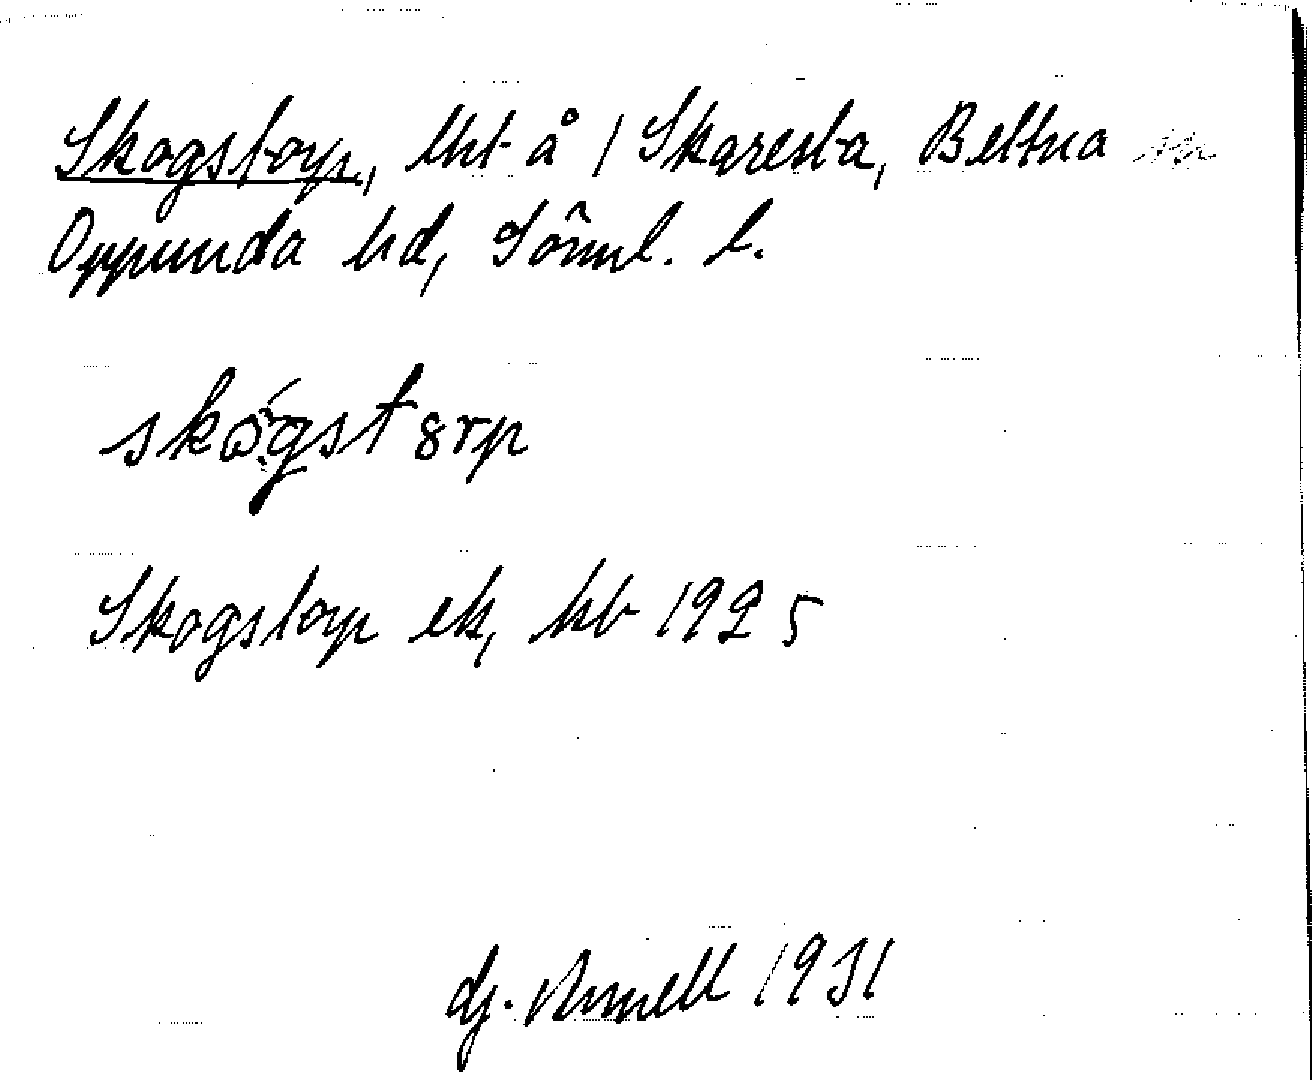 Skogstorp, lht å 1 Skaresta, Bettna sn
Oppunda hd, Sörml. l.
skógstorp
Skogstorp ek, hb 1925
1931